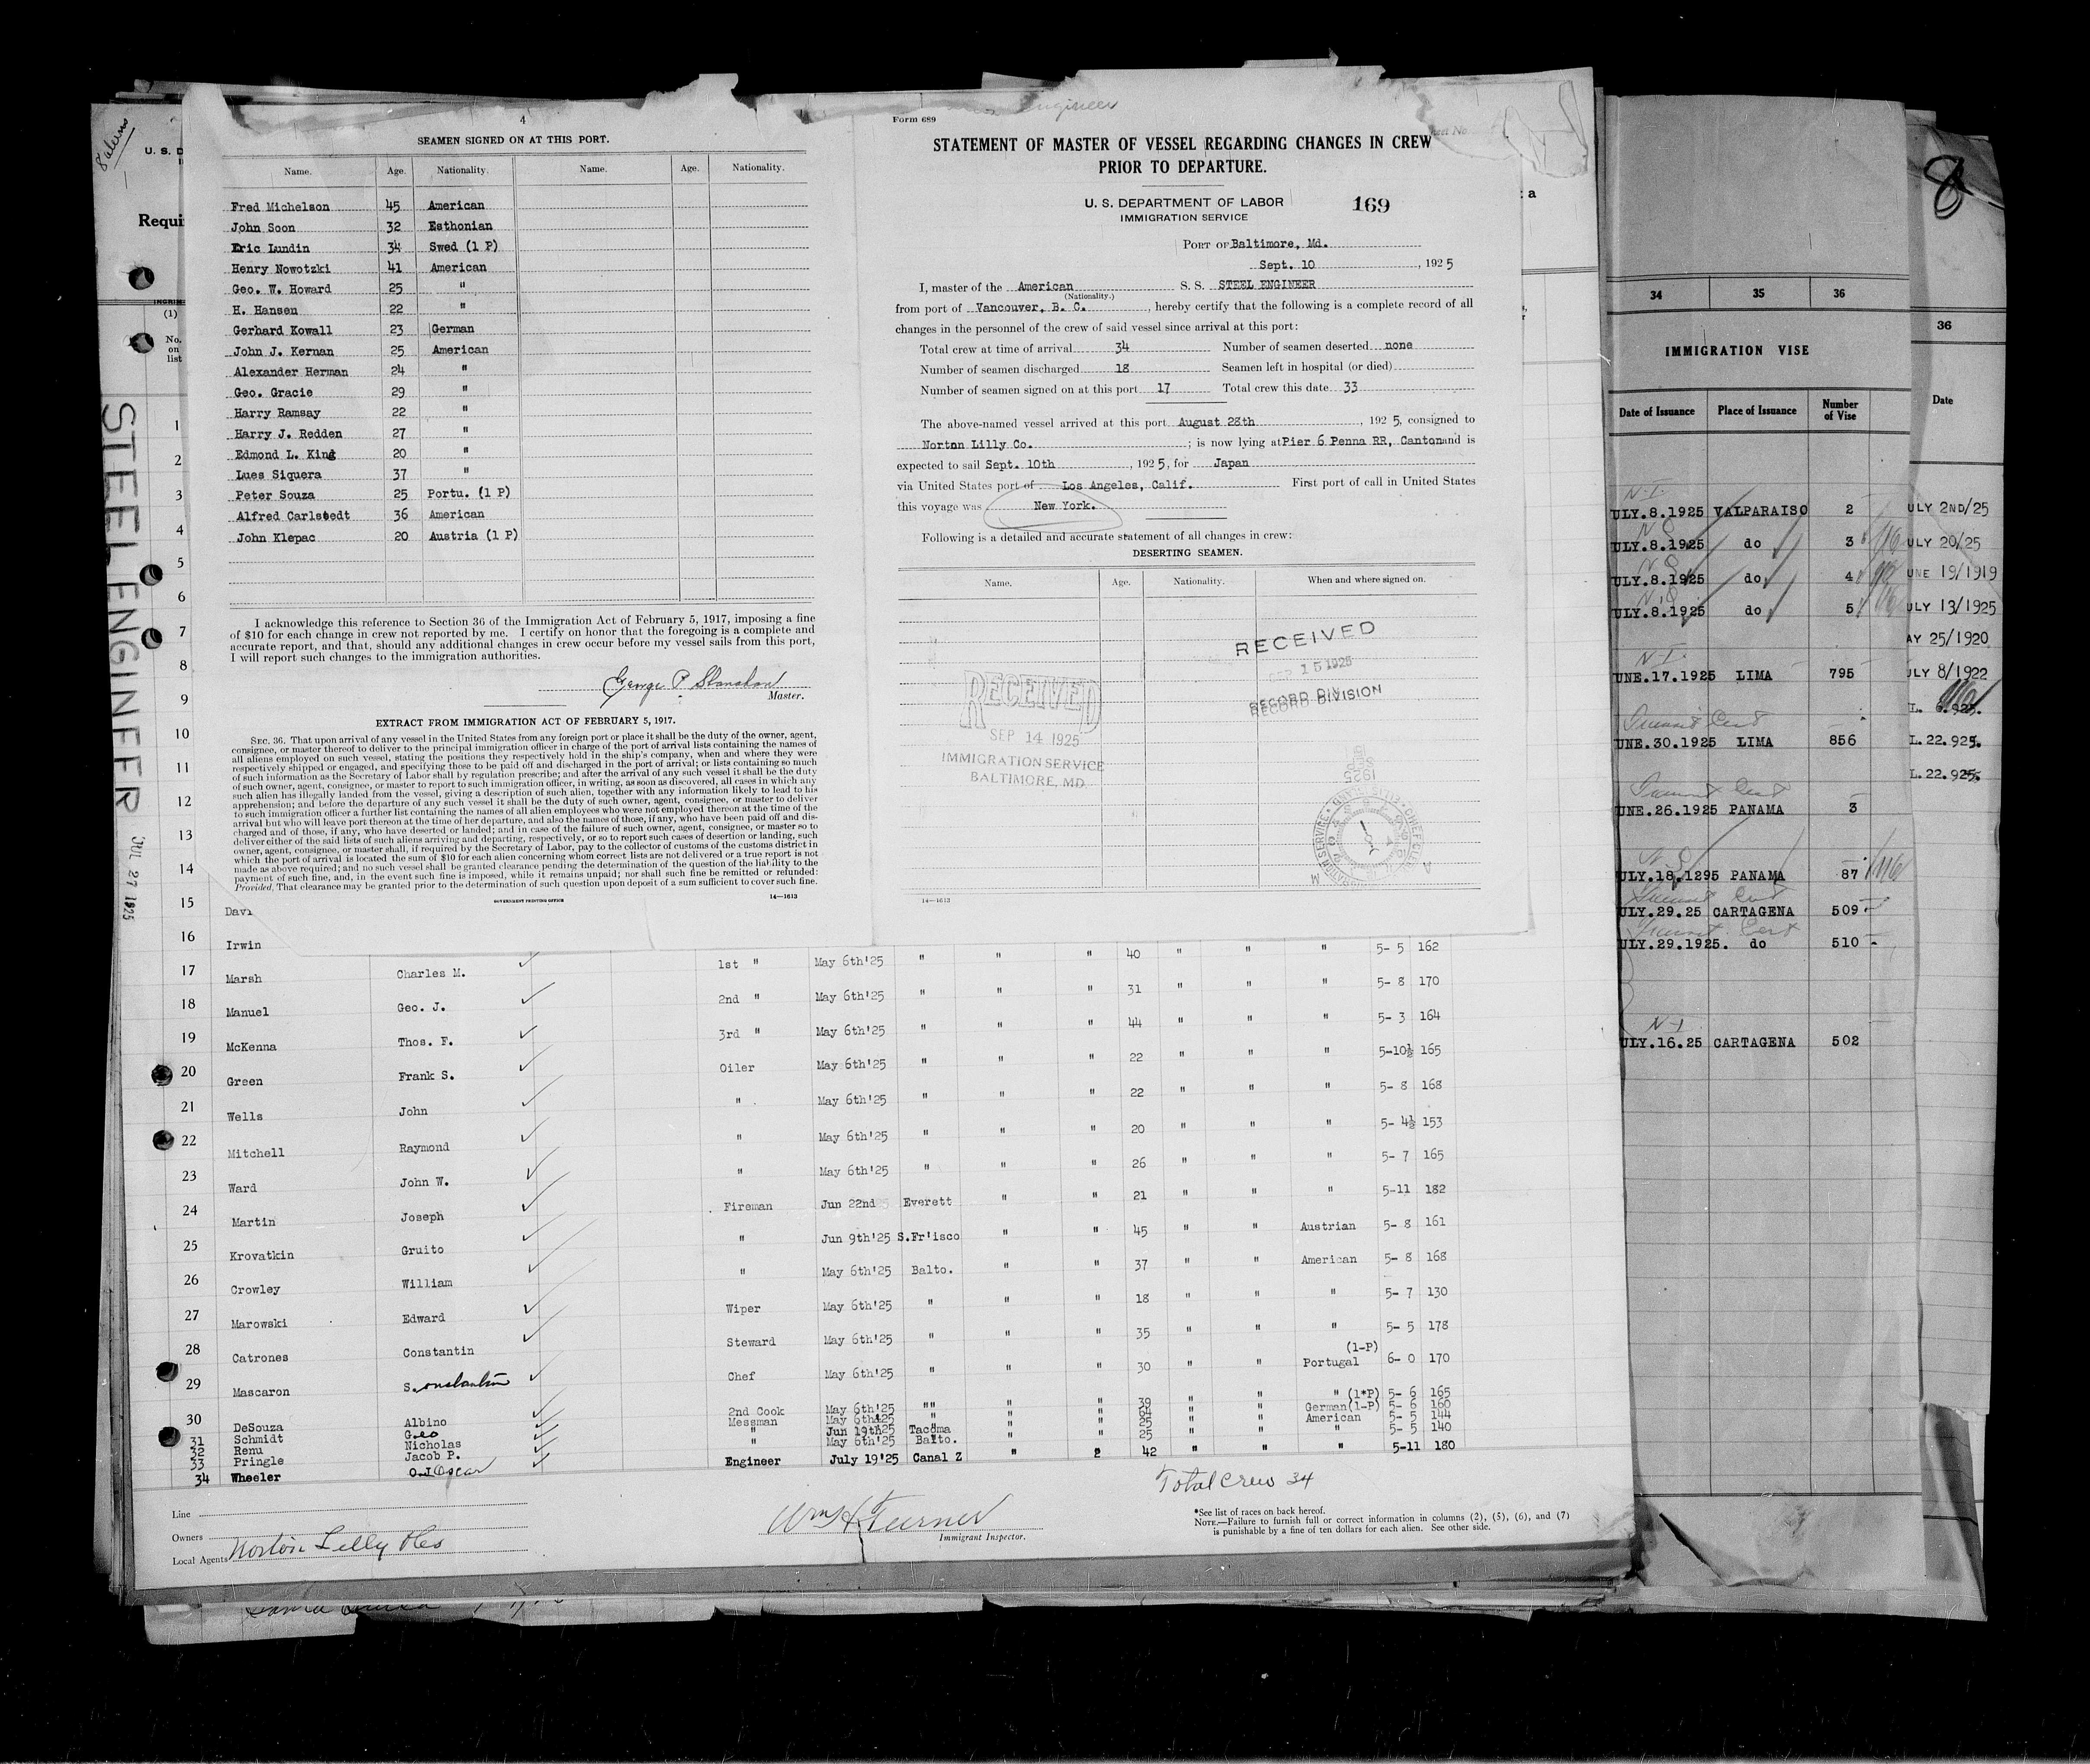 4
SEAMEN SIGNED ON AT THIS PORT.
Name. Age. Nationality. Name. Age. Nationality.
Fred Michelson 45 American
John Soon 32 Esthonian
Eric Lundin 34 Swed (1 P)
Henry Nowotzki 41 American
Geo. W. Howard 25 "
H. Hansen 22 "
Gerhard Kowall 23 German
John J. Kernan 25 American
Alexander Herman 24 "
Geo. Gracie 29 "
Harry Ramsay 22 "
Harry J. Redden 27 "
Edmond L. King 20 "
Lues Siquera 37 "
Peter Souza 25 Portu. (1 P)
Alfred Carlstedt 36 American
John Klepac 20 Austria (1 P)
I acknowledge this reference to Section 36 of the Immigration Act of February 5, 1917, imposing a fine
of $10 for each change in crew not reported by me. I certify on honor that the foregoing is a complete and
accurate report, and that, should any additional changes in crew occur before my vessel sails from this port,
I will report such changes to the immigration authorities.
George P. Shanahan
Master.
EXTRACT FROM IMMIGRATION ACT OF FEBRUARY 5, 1917.
SEC. 36. That upon arrival of any vessel in the United States from any foreign port or place it shall be the duty of the owner, agent,
consignee, or master thereof to deliver to the principal immigration officer in charge of the port of arrival lists containing the names of
all aliens employed on such vessel, stating the positions they respectively hold in the ship's company, when and where they were
respectively shipped or engaged, and specifying those to be paid off and discharged in the port of arrival; or lists containing so much
of such information as the Secretary of Labor shall by regulation prescribe; and after the arrival of any such vessel it shall be the duty
of such owner, agent, consignee, or master to report to such immigration officer, in writing, as soon as discovered, all cases in which any
such alien has illegally landed from the vessel, giving a description of such alien, together with any information likely to lead to his
apprehension; and before the departure of any such vessel it shall be the duty of such owner, agent, consignee, or master to deliver
to such immigration officer a further list containing the names of all alien employees who were not employed thereon at the time of the
arrival but who will leave port thereon at the time of her departure, and also the names of those, if any, who have been paid off and dis-
charged and of those, if any, who have deserted or landed; and in case of the failure of such owner, agent, consignee, or master so to
deliver either of the said lists of such aliens arriving and departing, respectively, or so to report such cases of desertion or landing, such
owner, agent, consignee, or master, shall, if required by the Secretary of Labor, pay to the collector of customs of the customs district in
which the port of arrival is located the sum of $10 for each alien concerning whom correct lists are not delivered or a true report is not
made as above required; and no such vessel shall be granted clearance pending the determination of the question of the liability to the
payment of such fine, and, in the event such fine is imposed, while it remains unpaid; nor shall such fine be remitted or refunded:
Provided, That clearance may be granted prior to the determination of such question upon deposit of a sum sufficient to cover such fine.
GOVERNMENT PRINTING OFFICE 14—1613
Form 689
STATEMENT OF MASTER OF VESSEL REGARDING CHANGES IN CREW
PRIOR TO DEPARTURE.
U. S. DEPARTMENT OF LABOR
IMMIGRATION SERVICE
169
PORT OF Baltimore, Md.
Sept. 10, 1925
I, master of the American S. S. STEEL ENGINEER
(Nationality.)
from port of Vancouver, B. C., hereby certify that the following is a complete record of all
changes in the personnel of the crew of said vessel since arrival at this port:
Total crew at time of arrival 34 Number of seamen deserted none
Number of seamen discharged 18 Seamen left in hospital (or died)
Number of seamen signed on at this port 17 Total crew this date 33
The above-named vessel arrived at this port August 28th, 1925, consigned to
Norton Lilly Co.; is now lying at Pier 6 Penna RR, Canton and is
expected to sail Sept. 10th, 1925, for Japan
via United States port of Los Angeles, Calif. First port of call in United States
this voyage was New York.
Following is a detailed and accurate statement of all changes in crew:
DESERTING SEAMEN.
Name. Age. Nationality. When and where signed on.
RECEIVED
SEP 15 1925
RECORD DIVISION
RECEIVED
SEP 14 1925
IMMIGRATION SERVICE
BALTIMORE, MD
14—1613
U. S. D
Requi
(1)
No.
on
list
STEEL ENGINEER
JUL 27 1925
1
2
3
4
5
6
7
8
9
10
11
12
13
14
15 Davi
16 Irwin 40 " " " 5- 5 162
17 Marsh Charles M. 1st " May 6th'25 " " " 31 " " " 5- 8 170
18 Manuel Geo. J. 2nd " May 6th'25 " " " 44 " " " 5- 3 164
19 McKenna Thos. F. 3rd " May 6th'25 " " " 22 " " " 5-10½ 165
20 Green Frank S. Oiler May 6th'25 " " " 22 " " " 5- 8 168
21 Wells John " May 6th'25 " " " 20 " " " 5- 4½ 153
22 Mitchell Raymond " May 6th'25 " " " 26 " " " 5- 7 165
23 Ward John W. " May 6th'25 " " " 21 " " " 5-11 182
24 Martin Joseph Fireman Jun 22nd Everett " " 45 " " Austrian 5- 8 161
25 Krovatkin Gruito " Jun 9th'25 S.Fr'isco " " 37 " " American 5- 8 168
26 Crowley William " May 6th'25 Balto. " " 18 " " " 5- 7 130
27 Marowski Edward Wiper May 6th'25 " " " 35 " " " 5- 5 178
28 Catrones Constantin Steward May 6th'25 " " " 30 " " (1-P) Portugal 6- 0 170
29 Mascaron Chef May 6th'25 " " " 39 " " " (1*P) 5- 6 165
30 DeSouza Albino 2nd Cook May 6th'25 " " " 64 " " German(1-P) 5- 6 160
31 Schmidt Geo Messman May 6th'25 " " " 25 " " American 5- 5 144
32 Renu Nicholas " Jun 19th25 Tacoma " " 25 " " " 5- 5 140
33 Pringle Jacob P. " May 6th'25 Balto.
34 Wheeler Oscar Engineer July 19'25 Canal Z " 42 " " " 5-11 180
Total Crew 34
Line
Owners
Local Agents Norton Lilly
Wm H. Turner
Immigrant Inspector.
*See list of races on back hereof.
NOTE.—Failure to furnish full or correct information in columns (2), (5), (6), and (7)
is punishable by a fine of ten dollars for each alien. See other side.
34 35 36
IMMIGRATION VISE
Date of Issuance Place of Issuance Number of Vise
ULY.8.1925 VALPARAISO 2
ULY.8.1925 do 3
ULY.8.1925 do 4
ULY.8.1925 do 5
UNE.17.1925 LIMA 795
UNE.30.1925 LIMA 856
UNE.26.1925 PANAMA 3
ULY.18.1295 PANAMA 87
ULY.29.25 CARTAGENA 509
ULY.29.1925. do 510
ULY.16.25 CARTAGENA 502
8
36
Date
ULY 2ND/25
ULY 20/25
UNE 19/1919
ULY 13/1925
AY 25/1920
ULY 8/1922
L. 6.925.
L.22.925.
L.22.925.